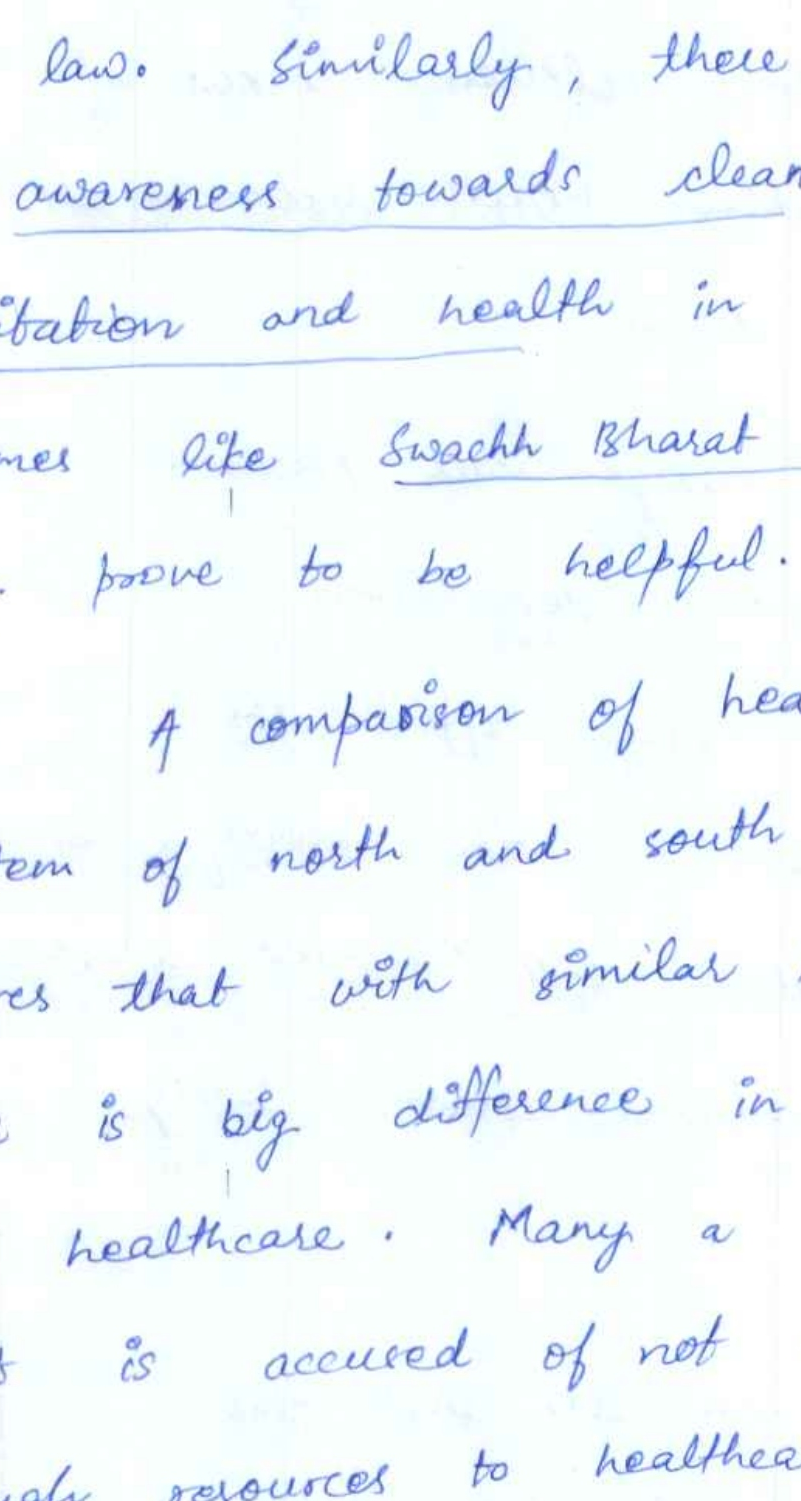 law. Similarly, there
awareness towards clean
itation and health in
mes like Swachh Bharat
prove to be helpful.
A comparison of hea
tem of north and south
es that with similar
is big difference in
healthcare. Many a
is accused of not
resources to healthca